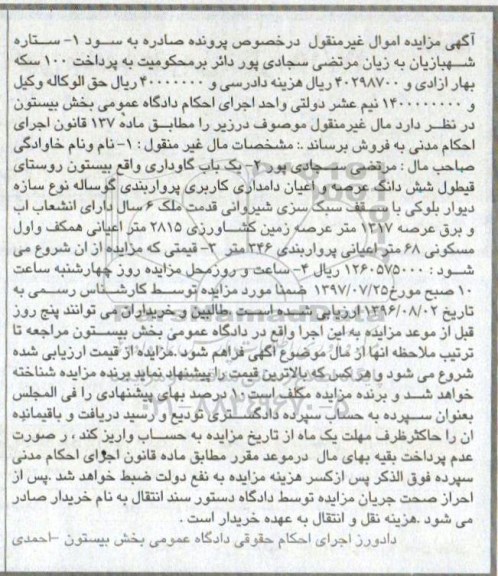 آگهی مزایده اموال غیرمنقول درخصوص پرونده صادره به سود ۱- ستاره
شهبازیان به زیان مرتضی سجادی پور دائر برمحکومیت به پرداخت ۱۰۰ سکه
بهار ازادی و ۴۰۲۹۸۷۰۰ ریال هزینه دادرسی و ۴۰۰۰۰۰۰۰ ریال حق الوکاله وکیل
و ۱۴۰۰۰۰۰۰۰۰ نیم عشر دولتی واحد اجرای احکام دادگاه عمومی بخش بیستون
در نظر دارد مال غیرمنقول موصوف درزیر را مطابق ماده ۱۳۷ قانون اجرای
احکام مدنی به فروش برساند .: مشخصات مال غیر منقول : ۱- نام ونام خاوادگی
صاحب مال : مرتضی سجادی پور ۲- یک باب گاوداری واقع بیستون روستای
قیطول شش دانگ عرصه و اعیان دامداری کاربری پرواربندی گوساله نوع سازه
دیوار بلوکی با سقف سبک سزی شیروانی قدمت ملک ۶ سال دارای انشعاب اب
و برق عرصه ۱۳۱۷ متر عرصه زمین کشاورزی ۲۸۱۵ متر اعیانی همکف واول
مسکونی ۶۸ متر اعیانی پرواربندی ۳۴۶ متر ۳- قیمتی که مزایده از ان شروع می
شود : ۱۲۶۰۵۷۵۰۰۰ ریال ۴- ساعت و روزمحل مزایده روز چهارشنبه ساعت
۱۰ صبح مورخ ۱۳۹۷/۰۷/۲۵ ضمنا مورد مزایده توسط کارشناس رسمی به
تاریخ ۱۳۹۶/۰۸/۰۲ ارزیابی شده است .طالبین و خریداران می توانند پنج روز
قبل از موعد مزایده به این اجرا واقع در دادگاه عمومی بخش بیستون مراجعه تا
ترتیب ملاحظه انها از مال موضوع آگهی فراهم شود .مزایده از قیمت ارزیابی شده
شروع می شود و هر کس که بالاترین قیمت را پیشنهاد نماید برنده مزایده شناخته
خواهد شد و برنده مزایده مکلف است ۱۰ درصد بهای پیشنهادی را فی المجلس
بعنوان سپرده به حساب سپرده دادگستری تودیع و رسید دریافت و باقیمانده
ان را حداکثرظرف مهلت یک ماه از تاریخ مزایده به حساب واریز کند ، ر صورت
عدم پرداخت بقیه بهای مال درموعد مقرر مطابق ماده قانون اجرای احکام مدنی
سپرده فوق الذکر پس ازکسر هزینه مزایده به نفع دولت ضبط خواهد شد .پس از
احراز صحت جریان مزایده توسط دادگاه دستور سند انتقال به نام خریدار صادر
می شود .هزینه نقل و انتقال به عهده خریدار است .
دادورز اجرای احکام حقوقی دادگاه عمومی بخش بیستون –احمدی